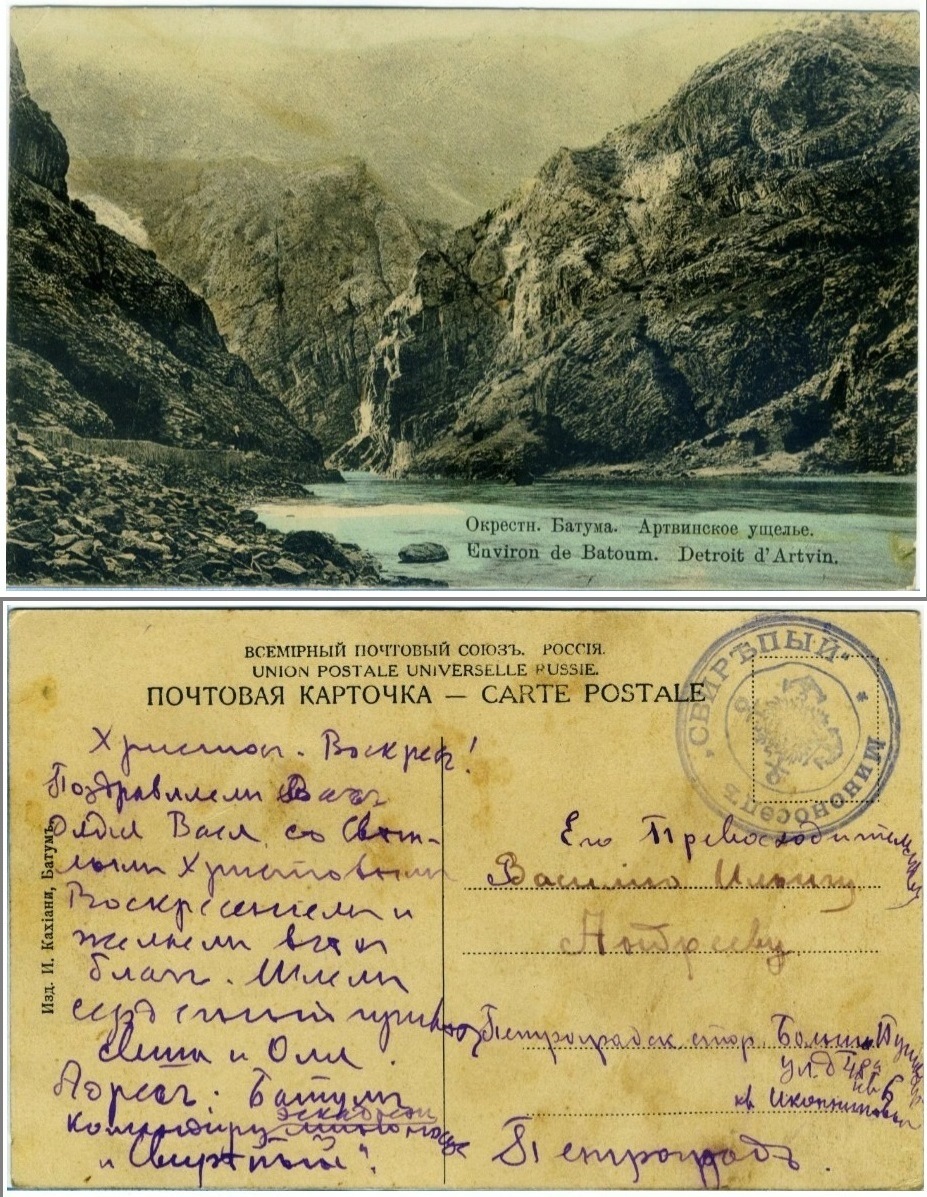 Окрестн. Батума. Артвинское ущелье.
Environ de Batoum. Detroit d'Artvin.
ВСЕМІРНЫЙ ПОЧТОВЫЙ СОЮЗЪ. РОССІЯ.
UNION POSTALE UNIVERSELLE RUSSIE.
ПОЧТОВАЯ КАРТОЧКА — CARTE POSTALE
„СВИРѢПЫЙ“ * МИНОНОСЕЦЪ
Христосъ Воскресъ!
Поздравляемъ Васъ
дядя Вася со Свѣт-
лымъ Христовымъ
Воскресеніемъ и
желаемъ всѣхъ
благъ. Шлемъ
сердечный привѣтъ
и Оля.
Адресъ. Батумъ
Командиру эскадрен миноносца
„Свирѣпый“.
Изд. И. Кахіани, Батумъ.
Его Превосходительству
Василію Ильичу
Андрееву
Петроградск стор. Больш.
ул. д 48а
кв 6
кв.
Петроградъ.